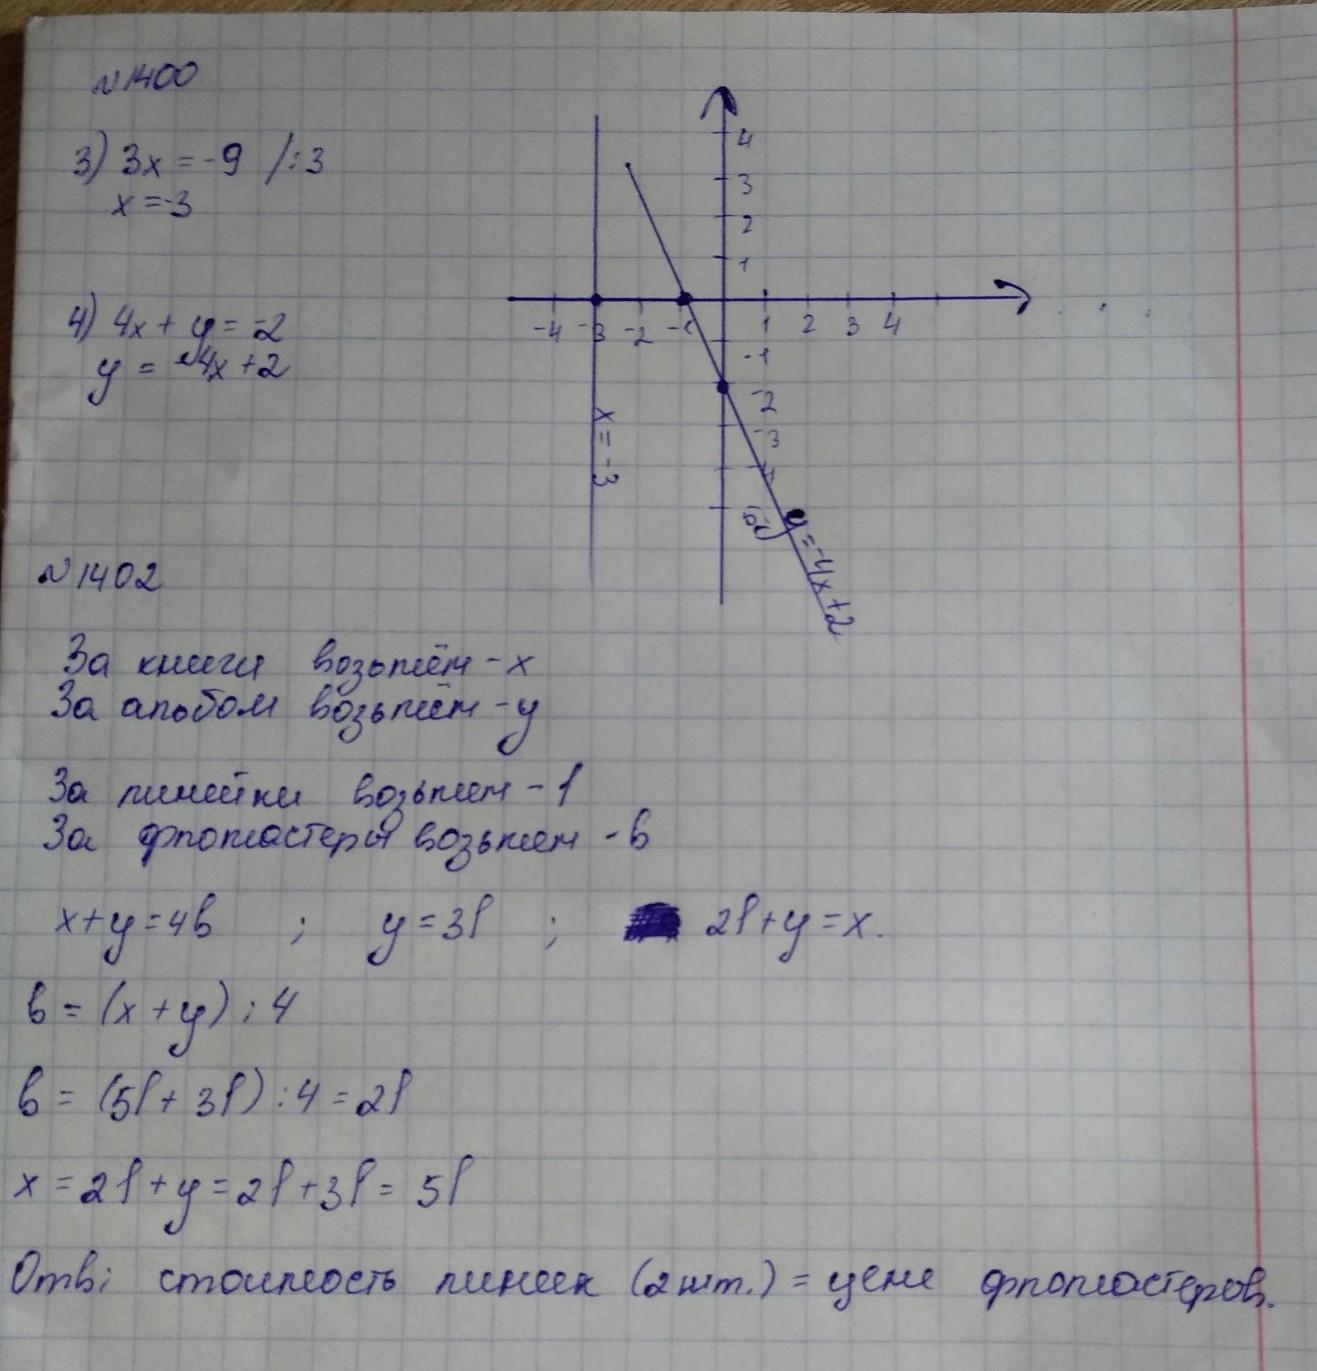 №1400
3) 3x = -9 /:3
x = -3
4) 4x + y = -2
y = -4x + 2
4
3
2
1
-4 -3 -2 -1 1 2 3 4
-1
-2
-3
x = -3
y = -4x + 2
№1402
За книги возьмём - x
За альбом возьмём - y
За линейки возьмем - l
За фломастеры возьмем - b
x + y = 4b ; y = 3l ; 2l + y = x.
b = (x + y) : 4
b = (5l + 3l) : 4 = 2l
x = 2l + y = 2l + 3l = 5l
Отв: стоимость линеек (2 шт.) = цене фломастеров.